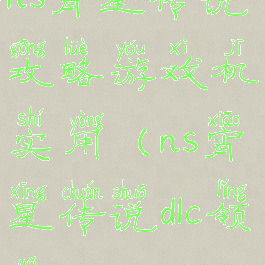 ns宵星传说
gōng lüè yóu xì jī
攻略游戏机
shí yòng xiāo
实用(ns宵
xīng chuán shuō lǐng
星传说dlc领